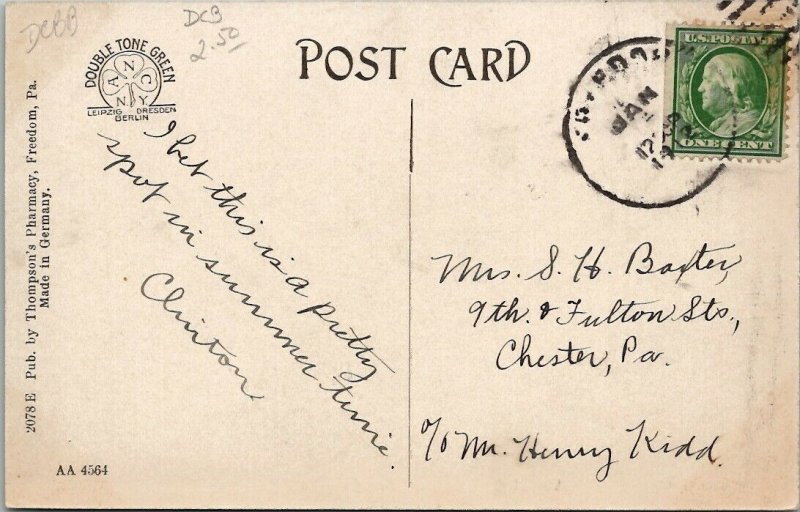 DCBB
DCB
2.50
DOUBLE TONE GREEN
A N C N Y
LEIPZIG DRESDEN
BERLIN
POST CARD
U.S. POSTAGE
ONE CENT
JAN
I bet this is a pretty
spot in summer time.
Clinton
Mrs. S. H. Baxter,
9th. & Fulton Sts.,
Chester, Pa.
c/o Mr. Henry Kidd.
2078 E Pub. by Thompson's Pharmacy, Freedom, Pa.
Made in Germany.
AA 4564